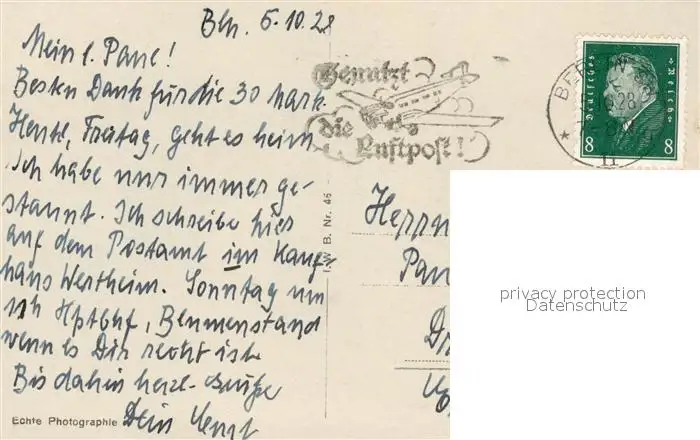 Bln. 5.10.28
Mein l. Paul!
Besten Dank für die 30 Mark.
Heute, Freitag, geht es heim
Ich habe nur immer ge-
staunt. Ich schreibe hier
auf dem Postamt im Kauf-
haus Wertheim. Sonntag um
11h Hptbhf, Blumenstand
wenn es Dir recht ist.
Bis dahin herzl. Grüße
Dein
Echte Photographie
I.W.B. Nr. 46
Benutzt
die
Luftpost!
BERLIN
Deutsches Reich
8 8
Herrn
privacy protection
Datenschutz